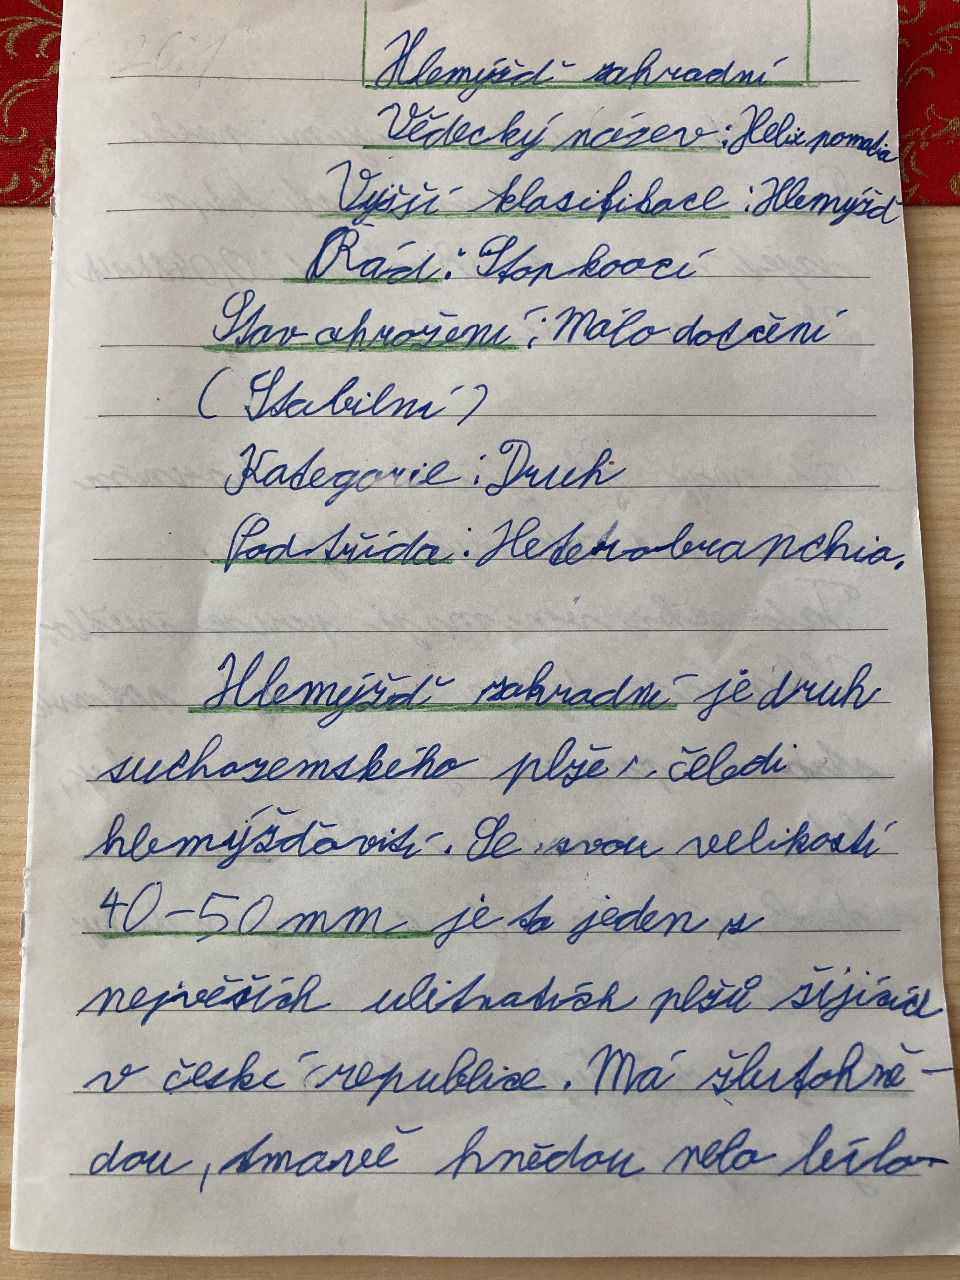 Hlemýžď zahradní
Vědecký název: Helix pomatia
Vyšší klasifikace: Hlemýžď
Řád: Stopkoocí
Stav ohrožení: Málo dotčení
(Stabilní)
Kategorie: Druh
Podtřída: Heterobranchia.
Hlemýžď zahradní je druh
suchozemského plže z čeledi
hlemýžďovití. Se svou velikostí
40-50 mm je to jeden z
největších ulitnatích plžů žijící
v české republice. Má žlutohně-
dou, tmavě hnědou nebo bílo-